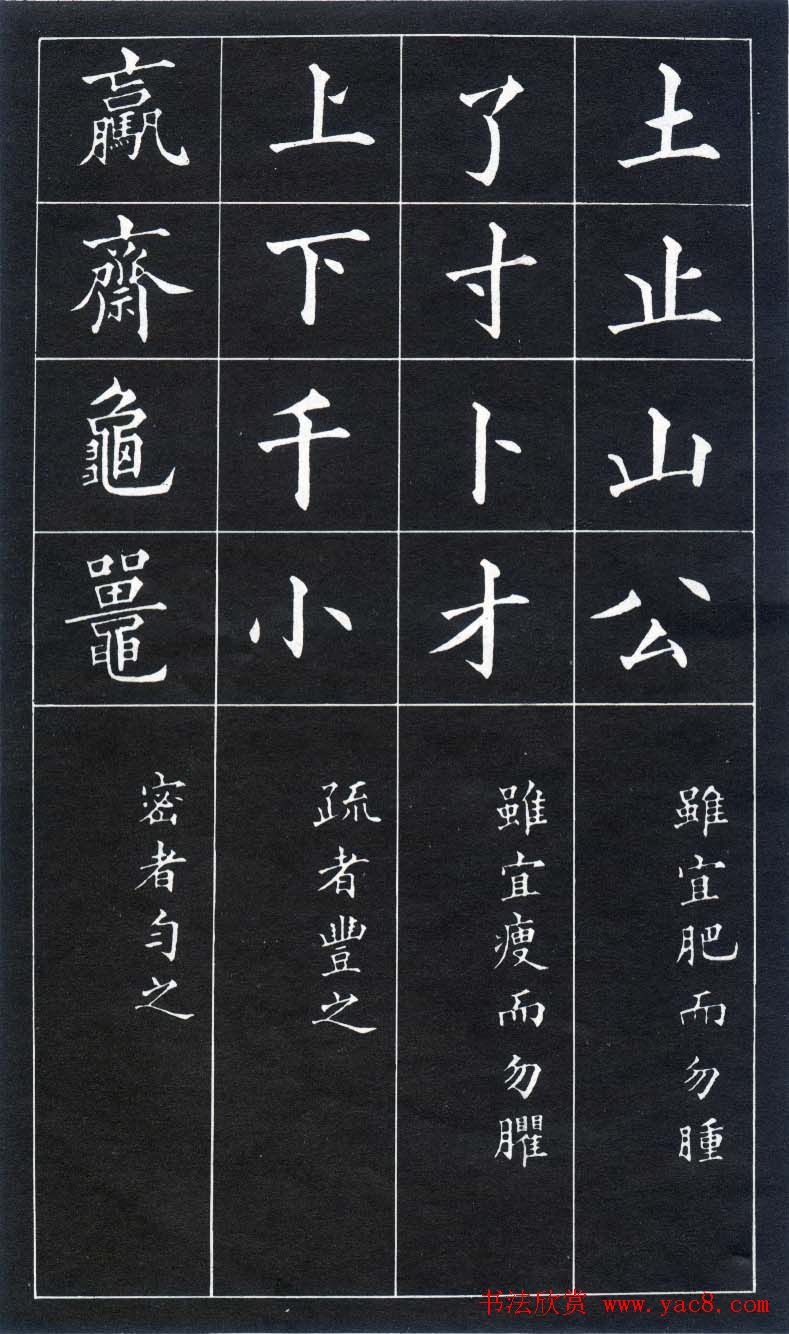 土止山公
雖宜肥而勿腫
了寸卜才
雖宜瘦而勿臞
上下千小
疏者豐之
驘齋龜鼉
密者勻之
书法欣赏 www.yac8.com